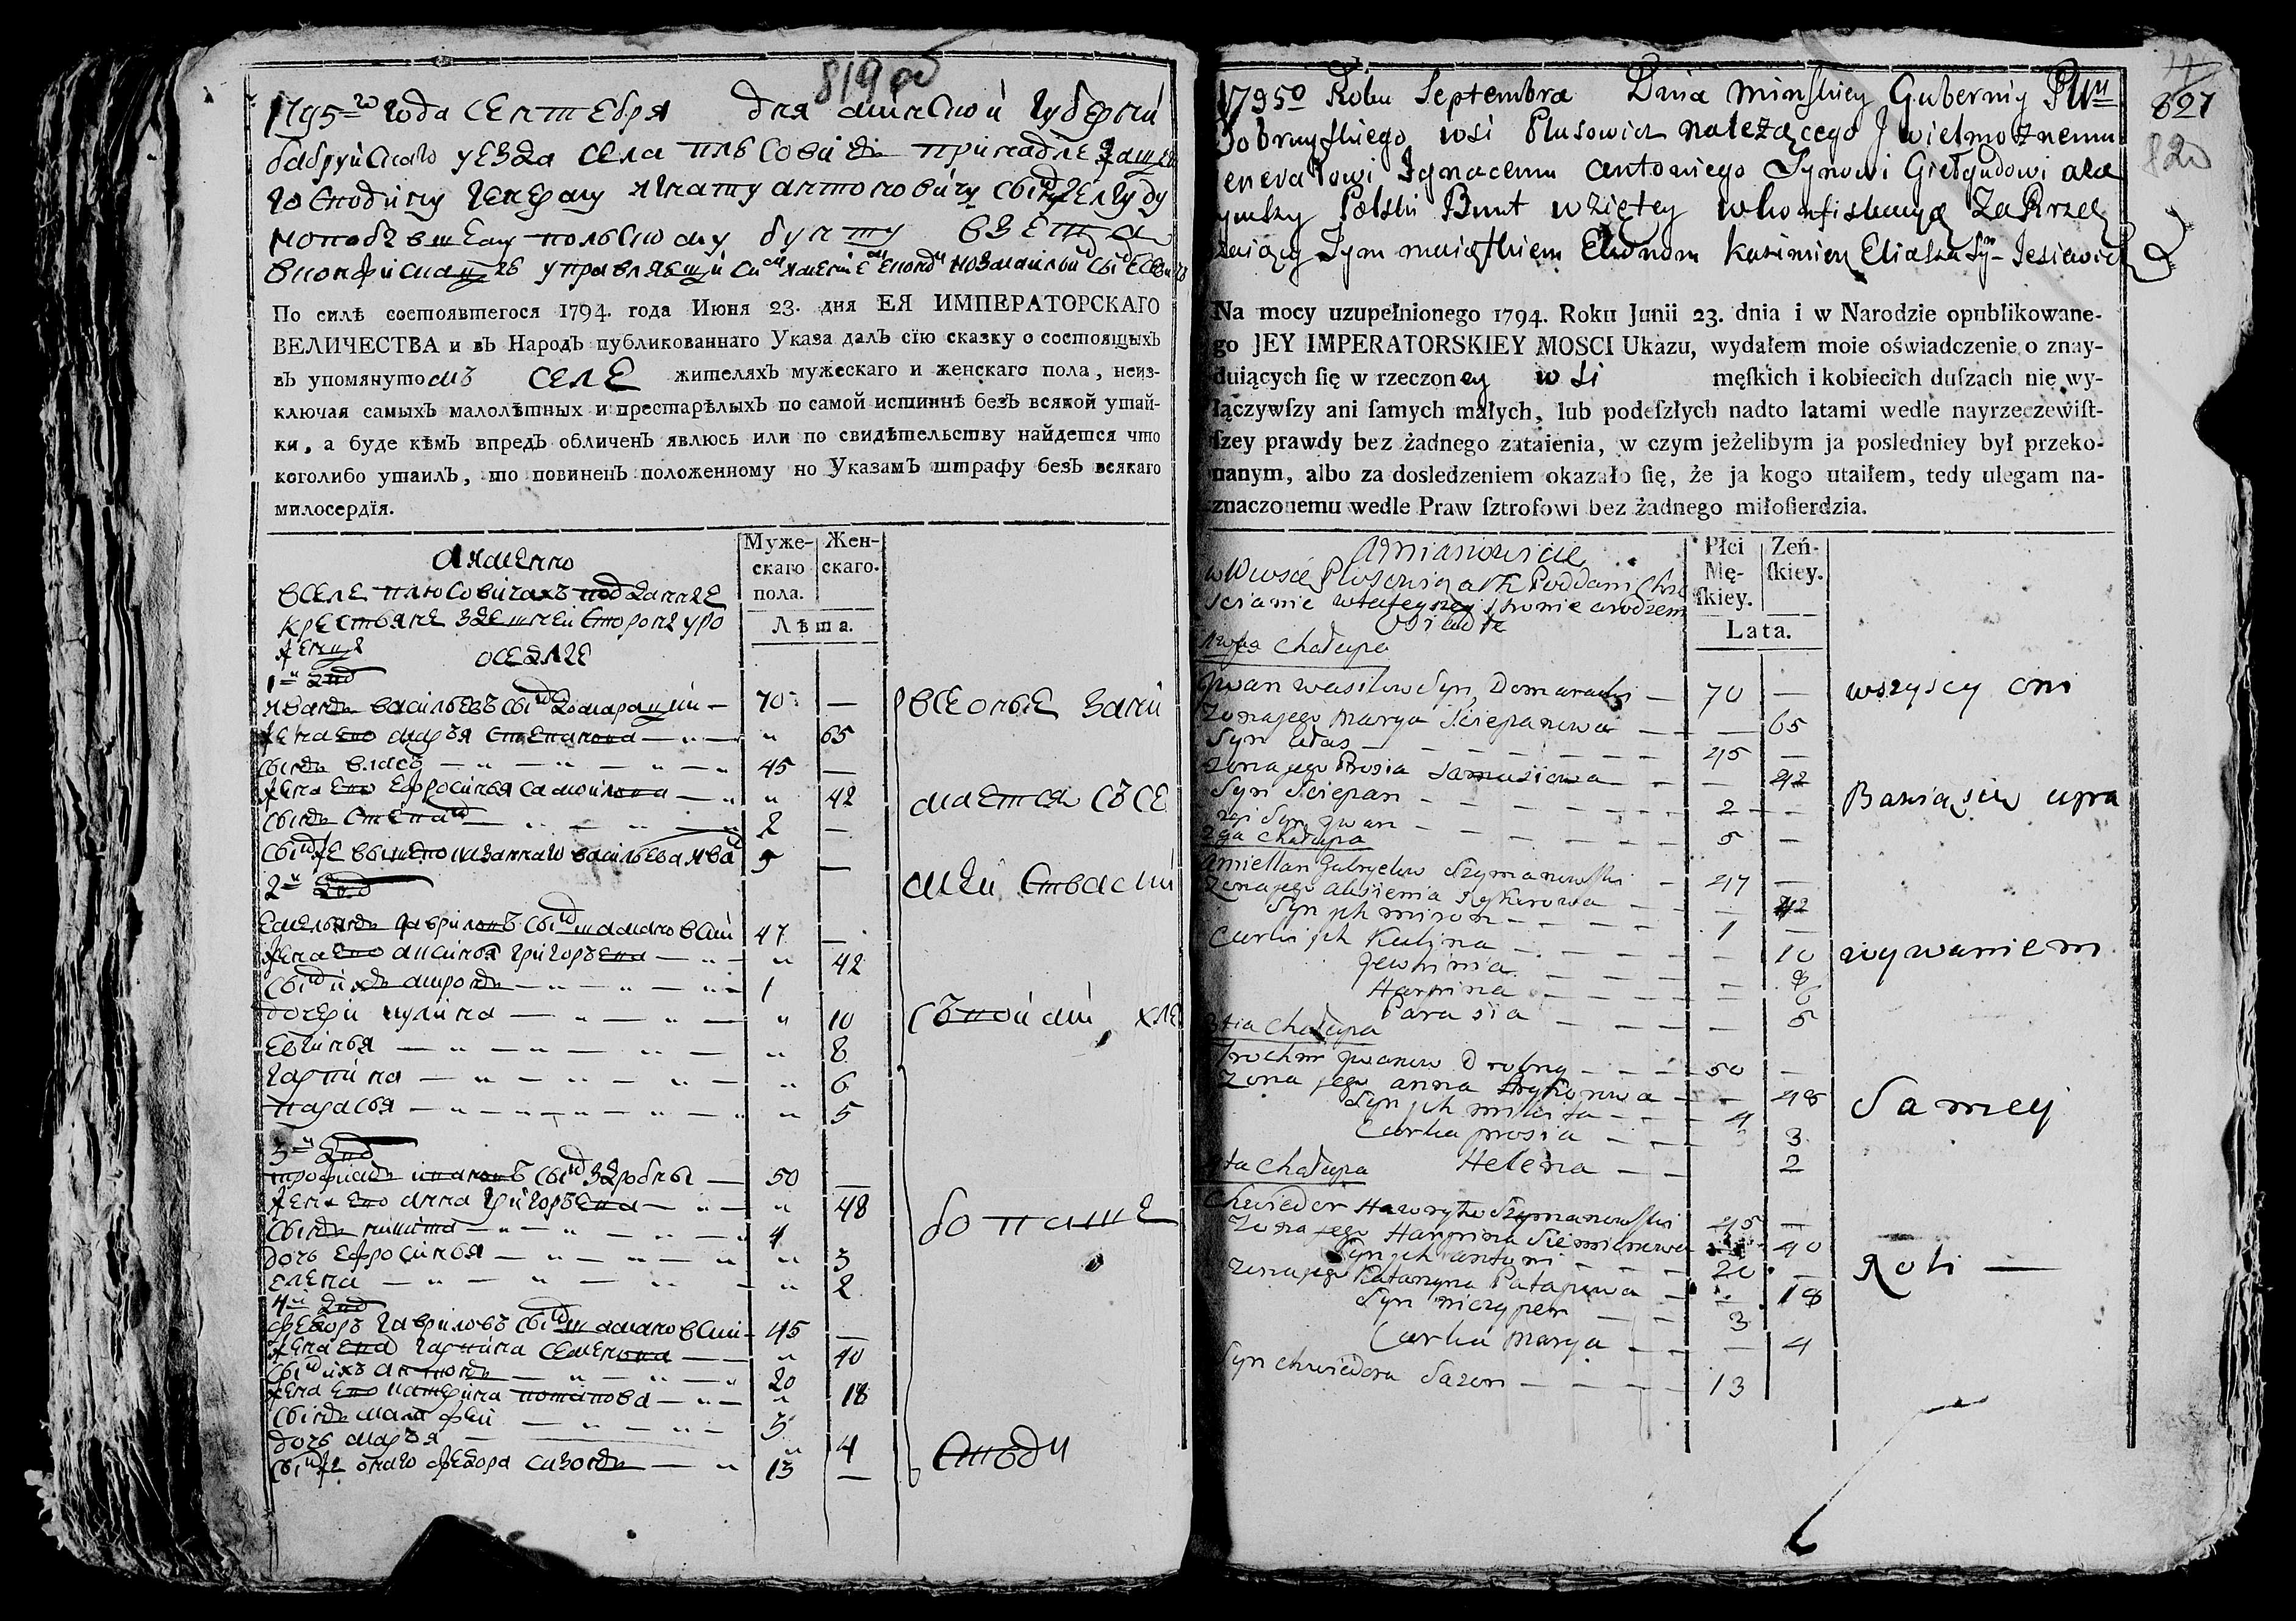 819 об
1795го года сентебря дня минской губернии
бабруйскаго уезда села плюсович принадлежаще
господину генералу игнату антоновичу сын гелгуду
польскому бунту взета
По силѣ состоявшегося 1794. года Июня 23. дня ЕЯ ИМПЕРАТОРСКАГО
ВЕЛИЧЕСТВА и въ Народъ публикованнаго Указа далъ сїю сказку о состоящыхъ
въ упомянутомъ селе жителяхъ мужескаго и женскаго пола, неиз-
ключая самыхъ малолѣтныхъ и престарѣлыхъ по самой истиннѣ безъ всякой утай-
ки, а буде кѣмъ впредъ обличенъ явлюсь или по свидѣтельству найдется что
коголибо утаилъ, то повиненъ положенному по Указамъ штрафу безъ всякаго
милосердїя.
Муже- скаго пола. Жен- скаго.
Лѣта.
а именно
в селе плюсовичахъ подданые
крестьяне здешней стороне уро
женцы
оседле
1й двор
иван васильевъ сын домарацки — 70 —
жена его марья степанова — " — " 65
сын власъ — " — " — " — " 45 —
жена его ефросинья самойлова — " " 42
сын степан — " — " 2 —
сын же вышепоказаннаго василева иван 5 —
2й двор
емельян гаврилов сын шамановски 47 —
жена его аксинья григорьева — " — " 42
сын их мирон — " — " — " 1
дочери кулина — " — " — " 10
евгинья — " — " — " — " 8
гарпина — " — " — " — " 6
парасья — " — " — " — " 5
3й двор
трофим иванов сын здробны — 50 —
жена его анна григорьева — " — " 48
сын никита — " — " — " 4
дочь ефросинья — " — " — " 3
елена — " — " — " — " 2
4й двор
федоръ гавриловъ сын шамановски — 45 —
жена его гарпина семенова — " 40
сын ихъ антон — " — " 20
жена его катерина потапова — " — " 18
сын — " — " 3
дочь марья — " 4
сын же онаго федора сазон — " 13 —
все оные зани
маетса съсе
мействами
съпой ами хле
бопаше
ством
1795o Roku Septembra Dnia Minskiey Gubernij Pttu
Bobruyskiego wsi Plusowicz należącego J wielmożnemu
Jenerałowi Ignacemu Antoniego Synowi Giełgudowi
Polski Bunt wziętey w konfiskacyą Za Rząd
zaiący Tym maiątkiem Ekonom Kazimierz Eliasza Syn Jesiewicz
827
820
Na mocy uzupełnionego 1794. Roku Junii 23. dnia i w Narodzie opublikowane-
go JEY IMPERATORSKIEY MOSCI Ukazu, wydałem moie oświadczenie o znay-
duiących ſię w rzeczoney wsi męſkich i kobiecich duſzach nie wy-
łączywſzy ani ſamych małych, lub podeſzłych nadto latami wedle nayrzeczewiſt-
ſzey prawdy bez żadnego zataienia, w czym jeżelibym ja posledniey był przeko-
nanym, albo za dosledzeniem okazało ſię, że ja kogo utaiłem, tedy ulegam na-
znaczonemu wedle Praw ſztrofowi bez żadnego miłoſierdzia.
Płci Mę- ſkiey. Zeń- ſkiey.
Lata.
a mianowicie
w Wiosce Plusowiczach Poddani Chrze
scianie w tuteyszey stronie urodzeni
Osiadłe
1wsza Chałupa
Jwan wasilow Syn Domaracki — 70 —
Zona jego Marya Sciepanowa — — 65
Syn ułas — — 45 —
Zona jego Prosia Samusiowa — — 42
Syn Sciepan — — 2 —
Syn jwan — — 5 —
2ga Chałupa
amiellan Gabryelow Szymanowski — 47 —
Zona jego alusienia Ryhorowa — — 42
Syn jch miron — — 1 —
Curki jch Kulina — — 10
Jewhinia — — 8
Harpina — — 6
Parasia — — 5
3tia Chałupa
Trochim jwanow Drobny — — 50 —
Zona jego anna Hryhorowa — — 48
Syn jch mikita — — 4
Curka prosia — — 3
Helena — — 2
4ta Chałupa
Chwiedor Hawryłow Szymanowski 45 —
Zona jego Harpina Siemionowa 40
Syn jch antoni — — 20 —
Zona jego Katarzyna Patapowa — — 18
Syn niczyper — — 3
Curka Marya — — 4
Syn chwiedora Sazon — — 13
wszyscy oni
Bawią się upra
wywaniem
Samey
Roli —